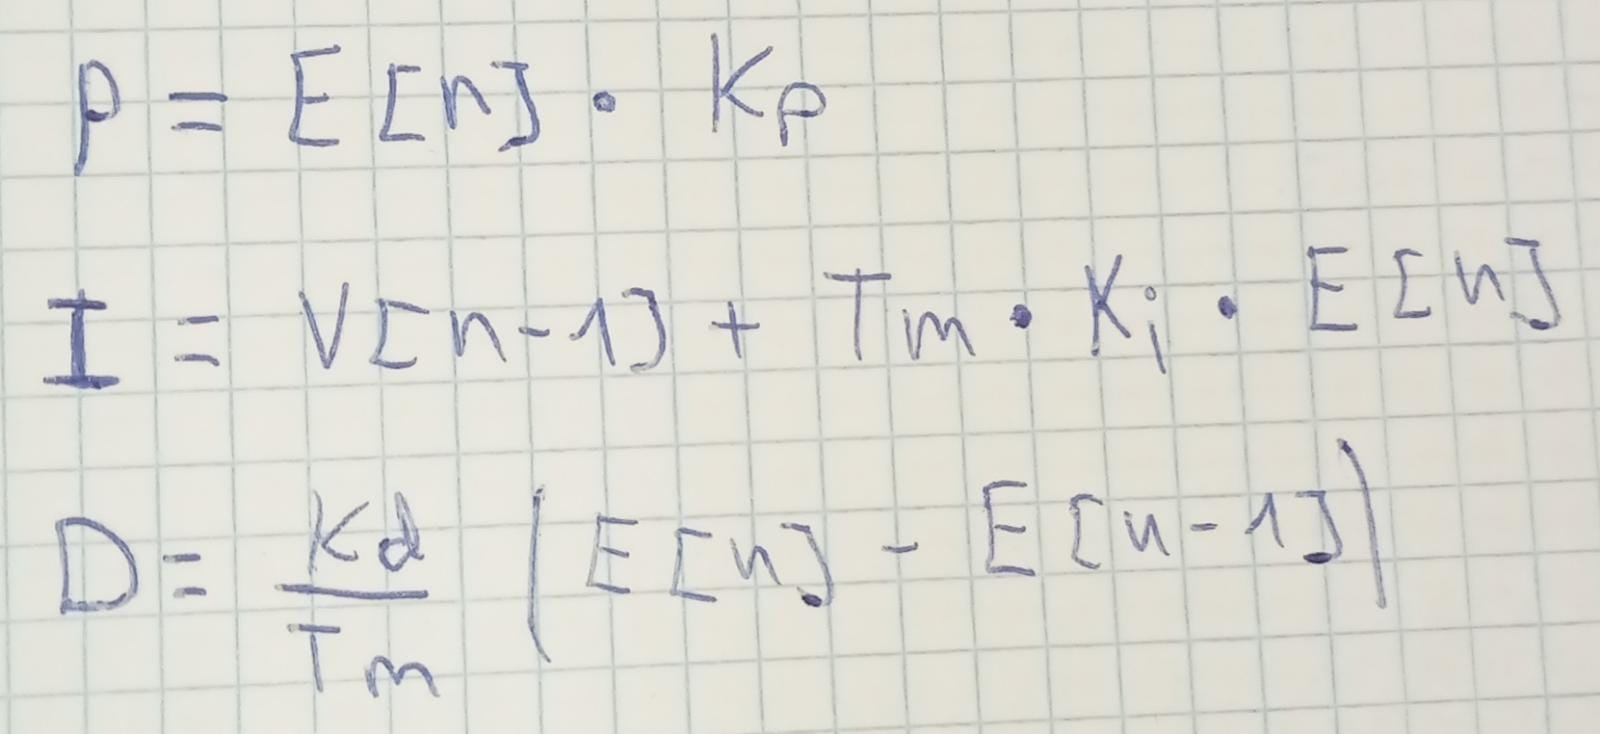 P = E[n] · Kp
I = V[n-1] + Tm · Ki · E[n]
D = Kd/Tm (E[n] - E[n-1])